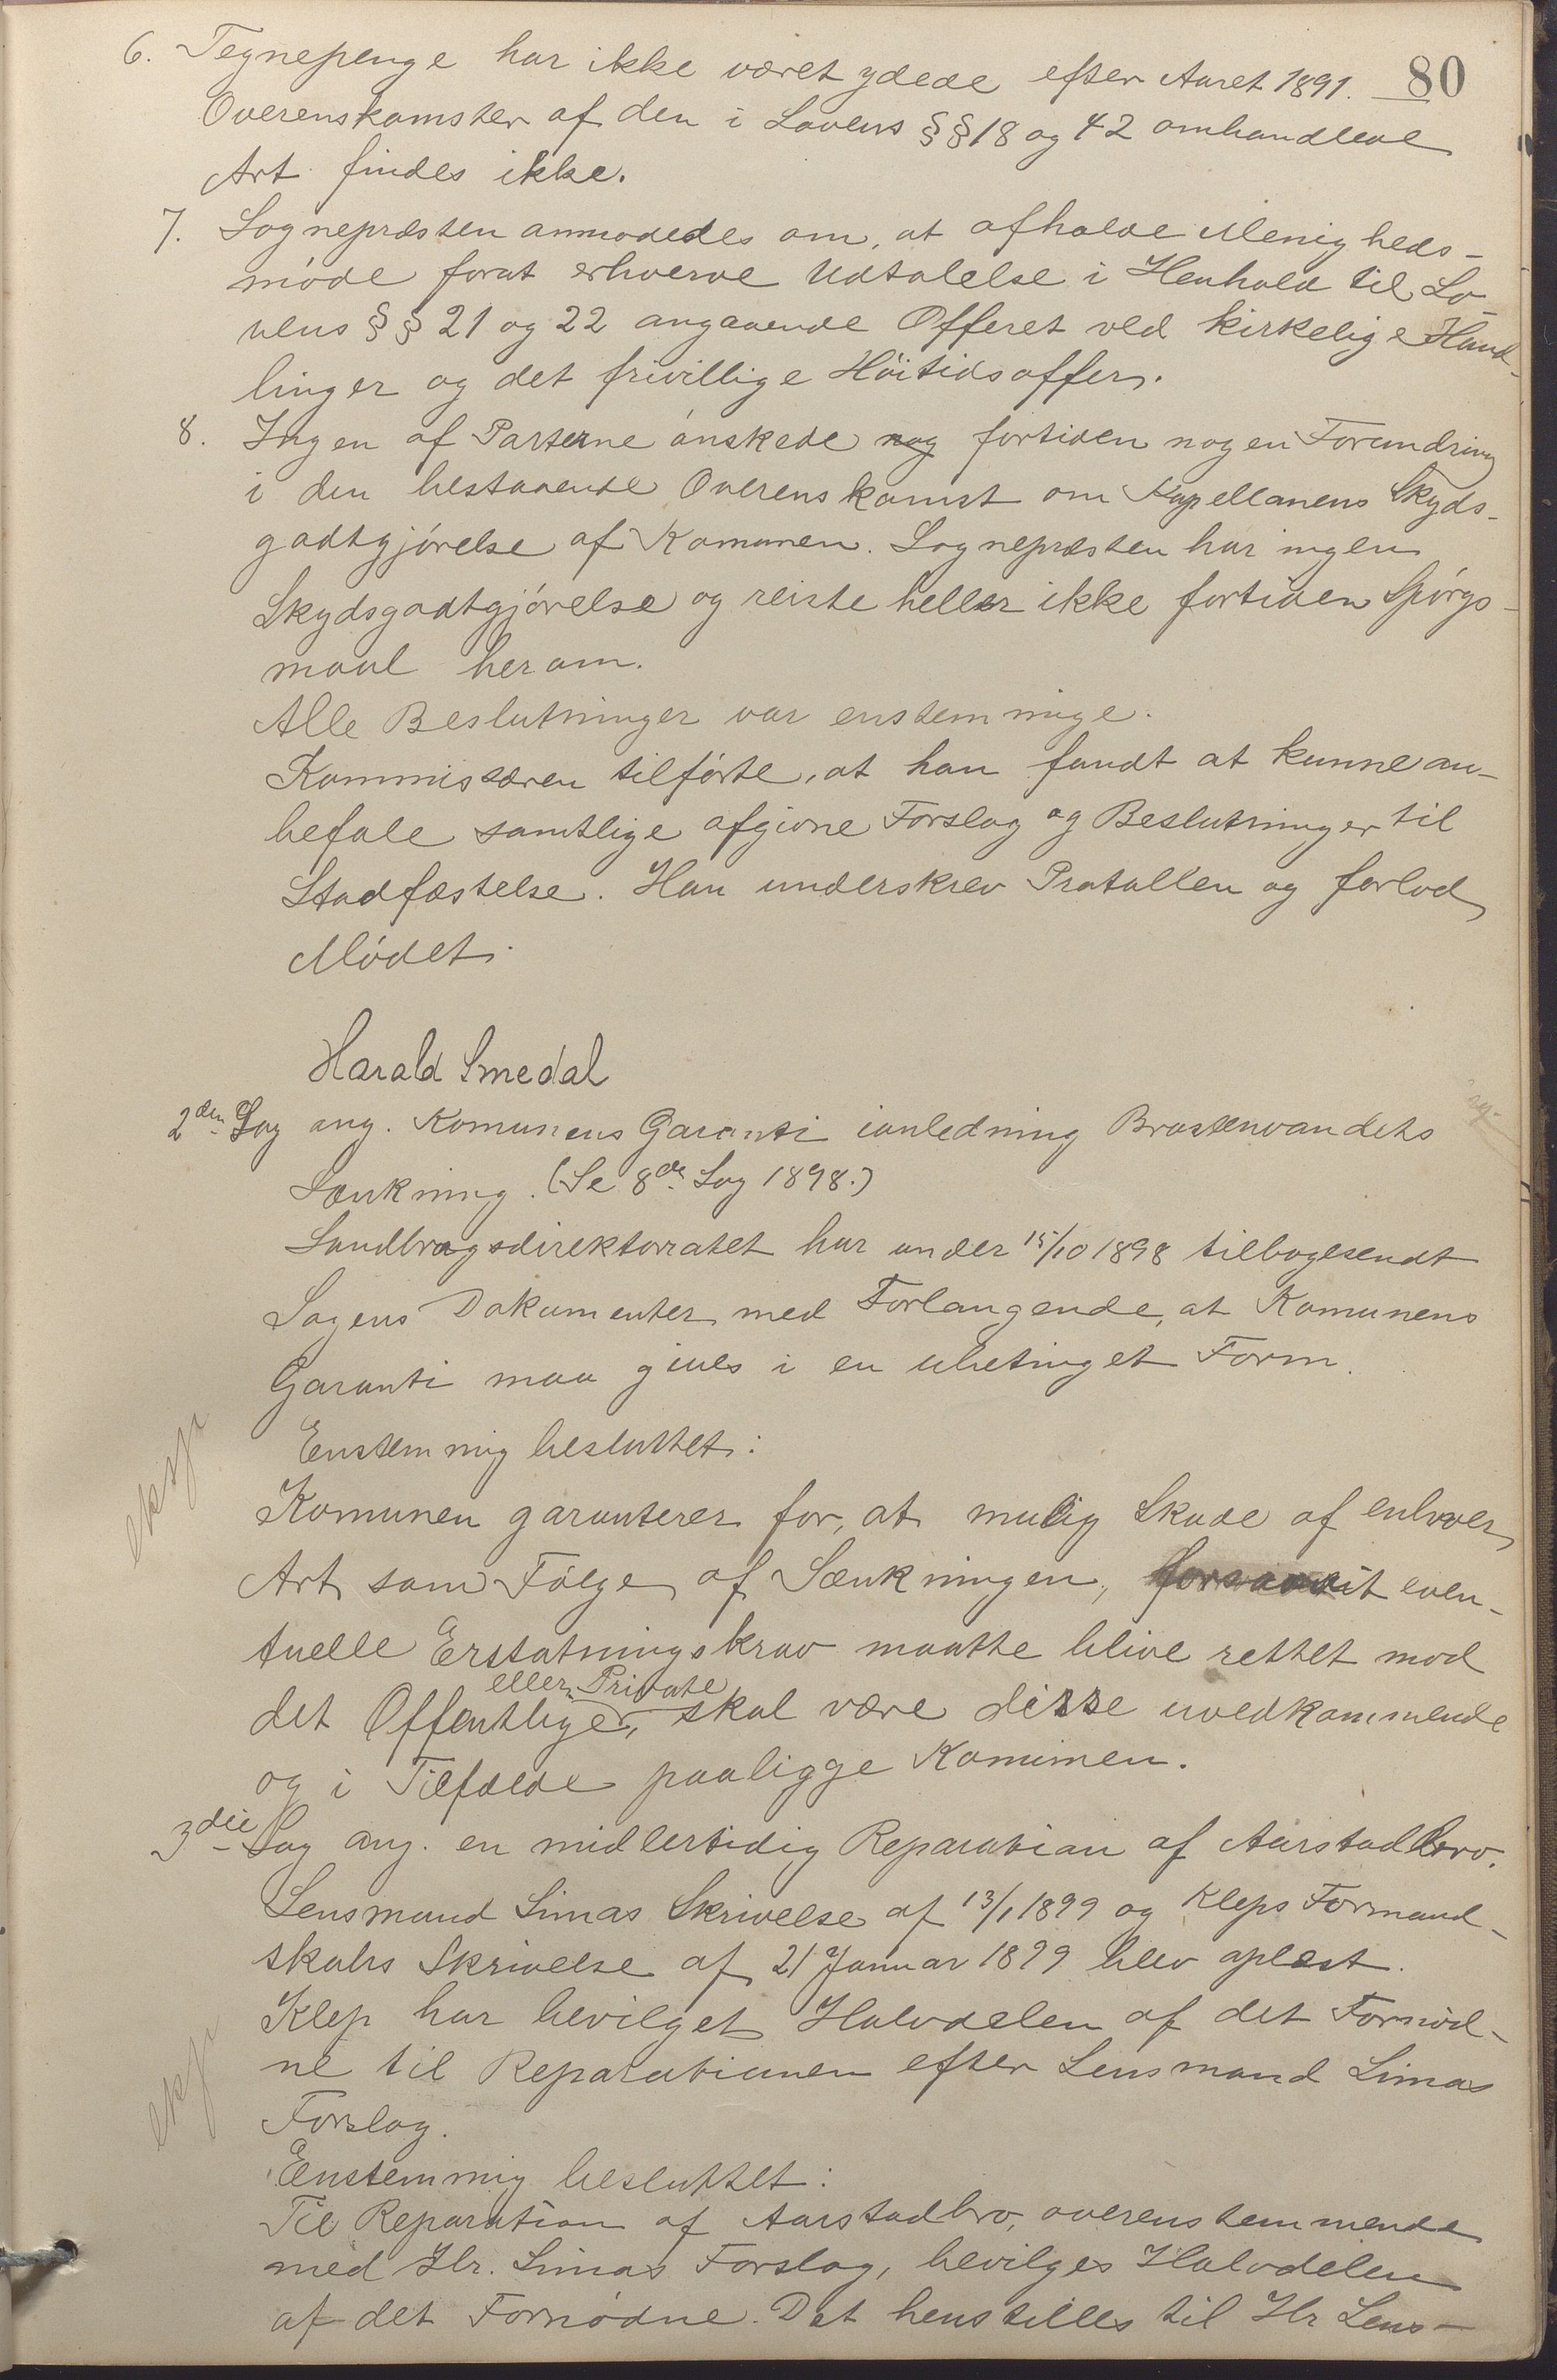 80
6. Tegnepenge har ikke været ydede efter Aaret 1891.
Overenskomster af den i Lovens §§ 18 og 42 omhandlede
Art findes ikke.
7. Sognepræsten anmodedes om, at afholde Menigheds-
møde forat erhverve Udtalelse i Henhold til Lo-
vens §§ 21 og 22 angaaende Offeret ved kirkelige Hand-
linger og det frivillige Høitidsoffer.
8. Ingen af Parterne ønskede nog fortiden nogen Forandring
i den bestaaende Overenskomst om Kapellanens Skyds-
godtgjørelse af Komunen. Sognepræsten har ingen
Skydsgodtgjørelse og reiste heller ikke fortiden Spørgs-
maal herom.
Alle Beslutninger var enstemmige.
Kommissæren tilførte, at han fandt at kunne an-
befale samtlige afgivne Forslag og Beslutninger til
Stadfæstelse. Han underskrev Protollen og forlod
Mødet.
Harald Smedal
2den Sag ang. Komunens Garanti ianledning Brastenvandets
Sænkning. (Se 8de Sag 1898.)
Landbrugsdirektorratet har under 15/10 1898 tilbagesendt
Sagens Dokumenter med Forlangende, at Komunens
Garanti maa gives i en ubetinget Form.
eksp
Enstemmig besluttet:
Komunen garanterer for, at mulig Skade af enhver
Art som Følge af Sænkningen, forsaavit even-
tuelle Erstatningskrav maatte blive rettet mod
eller Private
det Offentlige, skal være disse uvedkommende
og i Tilfælde paaligge Komunen.
3die Sag ang. en midlertidig Reparation af Aarstadbro.
Lensmand Limas Skrivelse af 13/1 1899 og Kleps Formand-
skabs Skrivelse af 21 Januar 1899 blev oplæst.
Klep har bevilget Halvdelen af det Fornød-
ne til Reparationen efter Lensmand Limas
eksp
Forslag.
Enstemmig besluttet:
Til Reparation af Aarstadbro, overenstemmende
med Hr. Limas Forslag, bevilges Halvdelen
af det Fornødne. Det henstilles til Hr Lens-